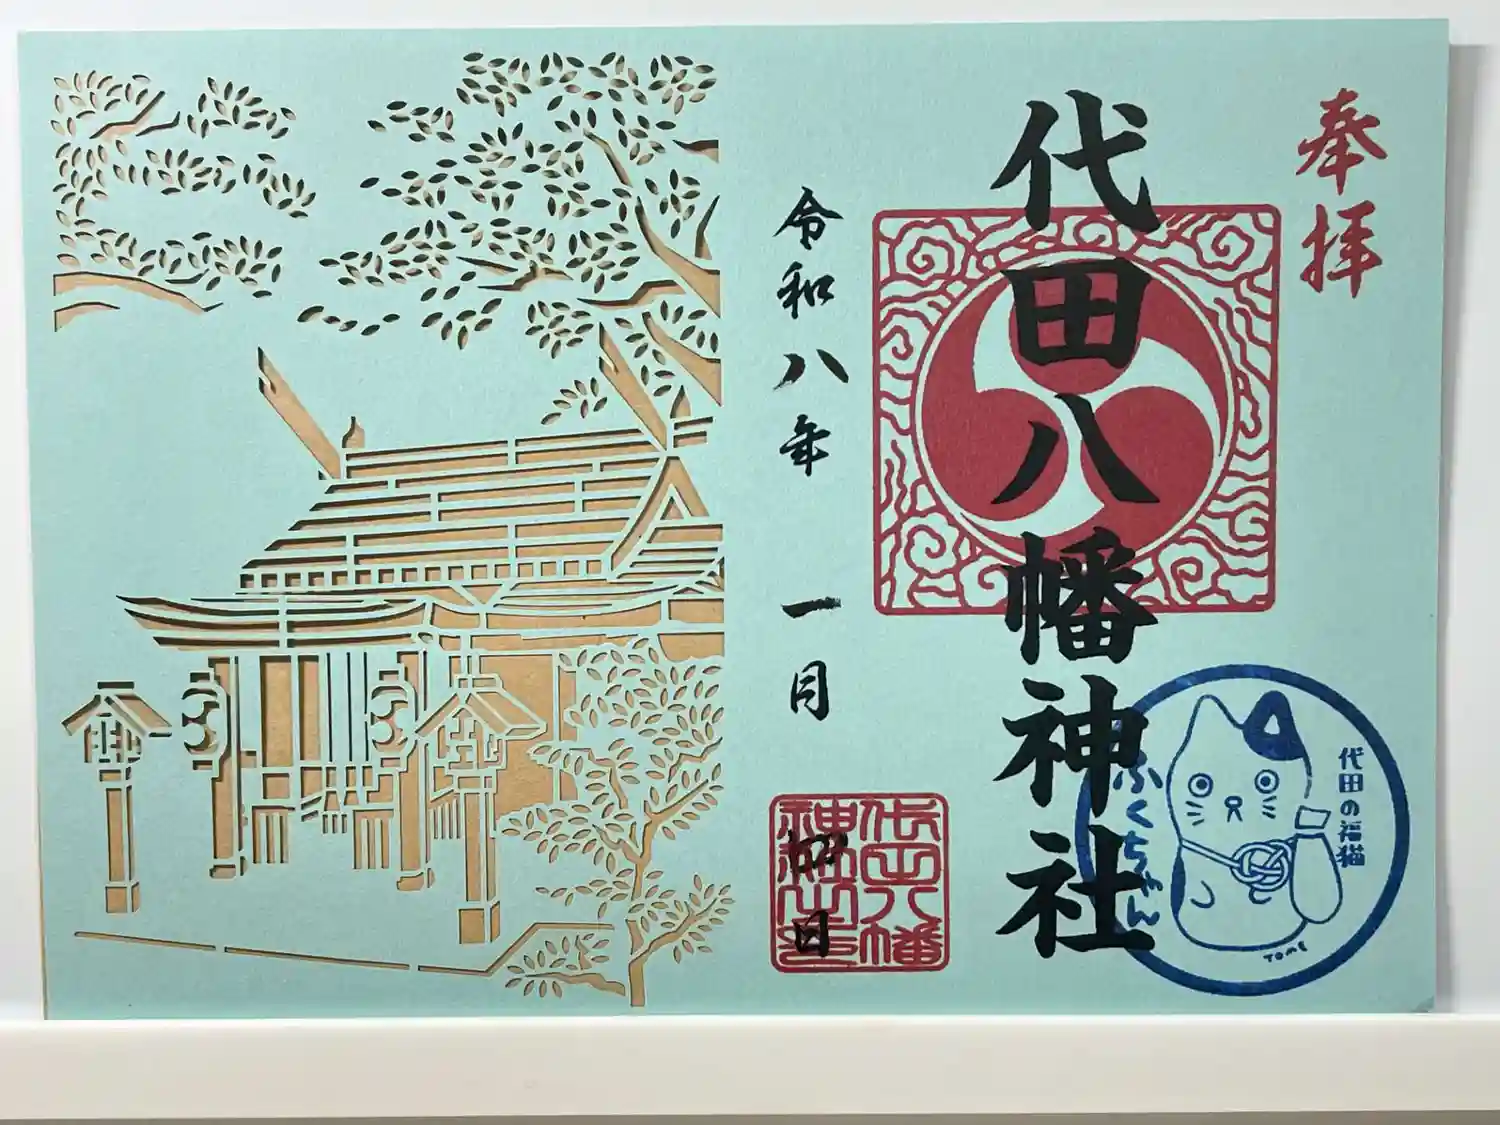 奉拝
代田八幡神社
代田の福猫
ふくちゃん
TOME
令和八年 一月 四日
代田八幡
神社之印